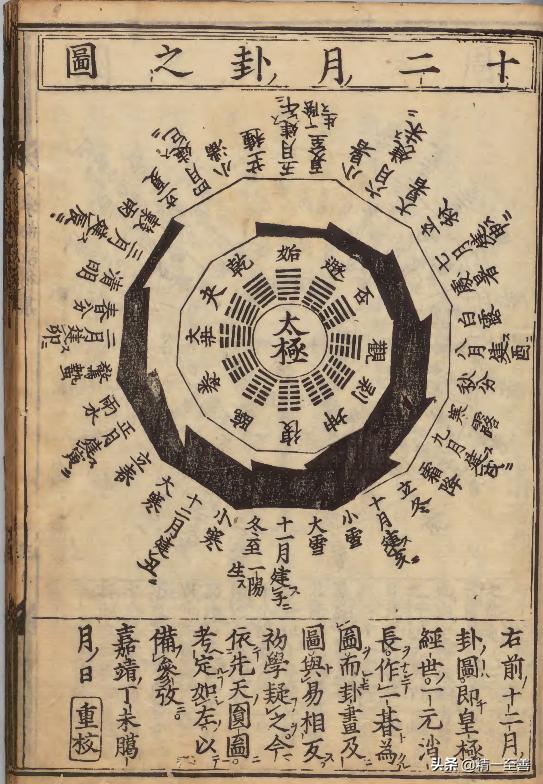 十二月卦之圖
五月建午
夏至一陰生
小暑
六月建未
大暑
立秋
七月建申
處暑
白露
八月建酉
秋分
寒露
九月建戌
霜降
立冬
十月建亥
小雪
大雪
十一月建子
冬至一陽生
小寒
十二月建丑
大寒
立春
正月建寅
雨水
驚蟄
二月建卯
春分
清明
三月建辰
穀雨
立夏
四月建巳
小滿
芒種
姤
遯
否
觀
剥
坤
復
臨
泰
大壯
夬
乾
太極
右前十二月
卦圖即皇極
經世一元消
長作一碁為
圖而卦畫及
圖與易相反
初學疑之今
依先天圓圖
考定如左以
備參攷
嘉靖丁未臈
月日 重校
头条 @精一至善